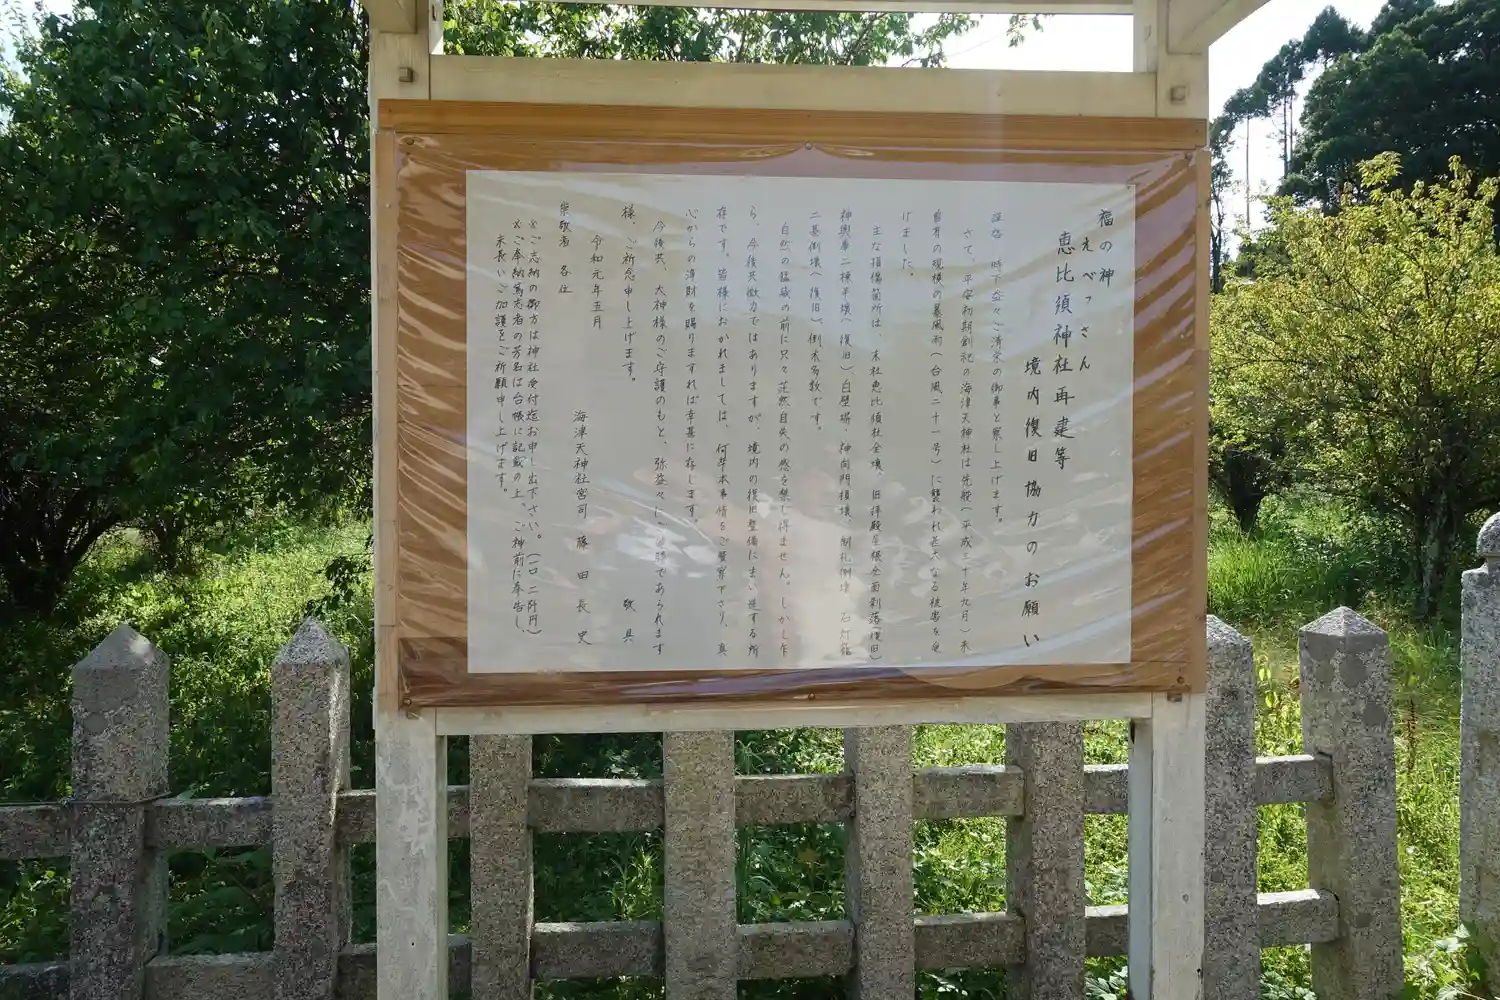 福の神
えべっさん
恵比須神社再建等
境内復旧協力のお願い
謹啓 時下益々ご清栄の御事と察し上げます。
さて、平安初期創祀の海津天神社は先般(平成三十年九月)未
曽有の規模の暴風雨(台風二十一号)に襲われ甚大なる被害を受
けました。
主な損傷箇所は、末社恵比須社全壊、旧拝殿屋根全面剥落(復旧)
神輿庫二棟半壊(復旧)白壁塀、神向門損壊、制札倒壊 石灯籠
二基倒壊(復旧)、倒木多数です。
自然の猛威の前に只々茫然自失の感を禁じ得ません。しかし乍
ら、今後共微力ではありますが、境内の復旧整備にまい進する所
存です。皆様におかれましては、何卒本事情をご賢察下さり、真
心からの浄財を賜りますれば幸甚に存じます。
今後共、大神様のご守護のもと、弥益々にご健勝であられます
様、ご祈念申し上げます。 敬具
令和元年五月
海津天神社宮司 藤田長史
崇敬者 各位
※ご志納の御方は神社受付迄お申し出下さい。(一口二阡円)
※ご奉納篤志者の芳名は台帳に記載の上、ご神前に奉告し、
末長いご加護をご祈願申し上げます。